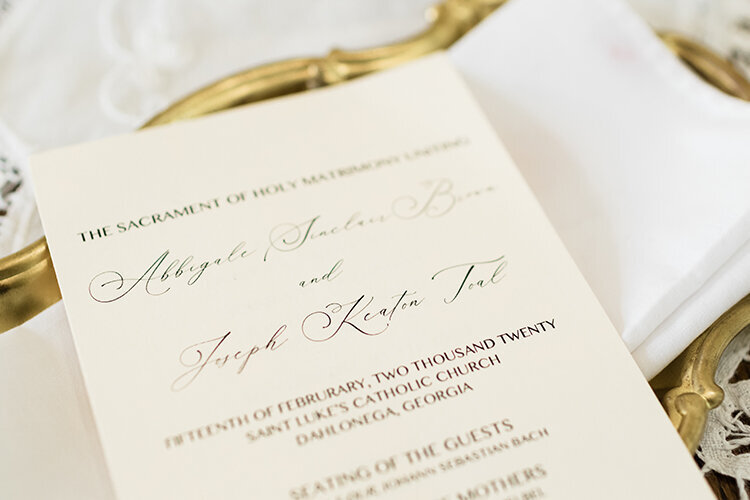 THE SACRAMENT OF HOLY MATRIMONY UNITING
Abbigale Sinclair Breen
and
Joseph Keaton Toal
FIFTEENTH OF FEBRURARY, TWO THOUSAND TWENTY
SAINT LUKE'S CATHOLIC CHURCH
DAHLONEGA, GEORGIA
SEATING OF THE GUESTS
JOHANN SEBASTIAN BACH
MOTHERS